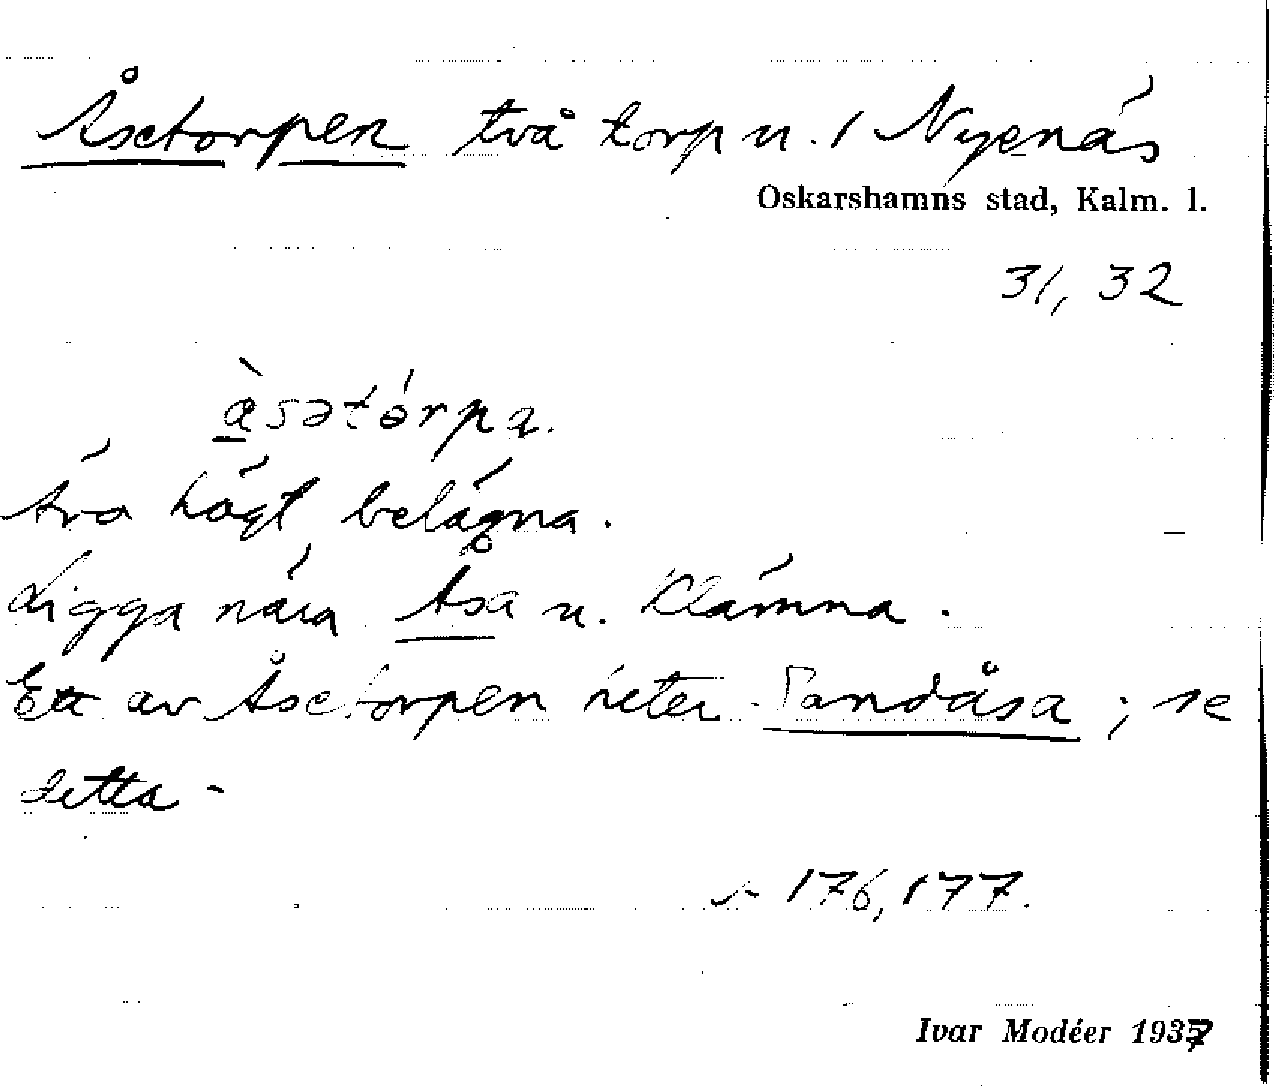 Åsetorpen två torp u. 1 Nyenäs
Oskarshamns stad, Kalm. l.
31, 32
å̱̀sətórpa.
två högt belägna.
Ligga nära Åsa u. Klämna.
Ett av Åsetorpen heter Sandåsa; se
detta -
s 176, 177.
Ivar Modéer 1937